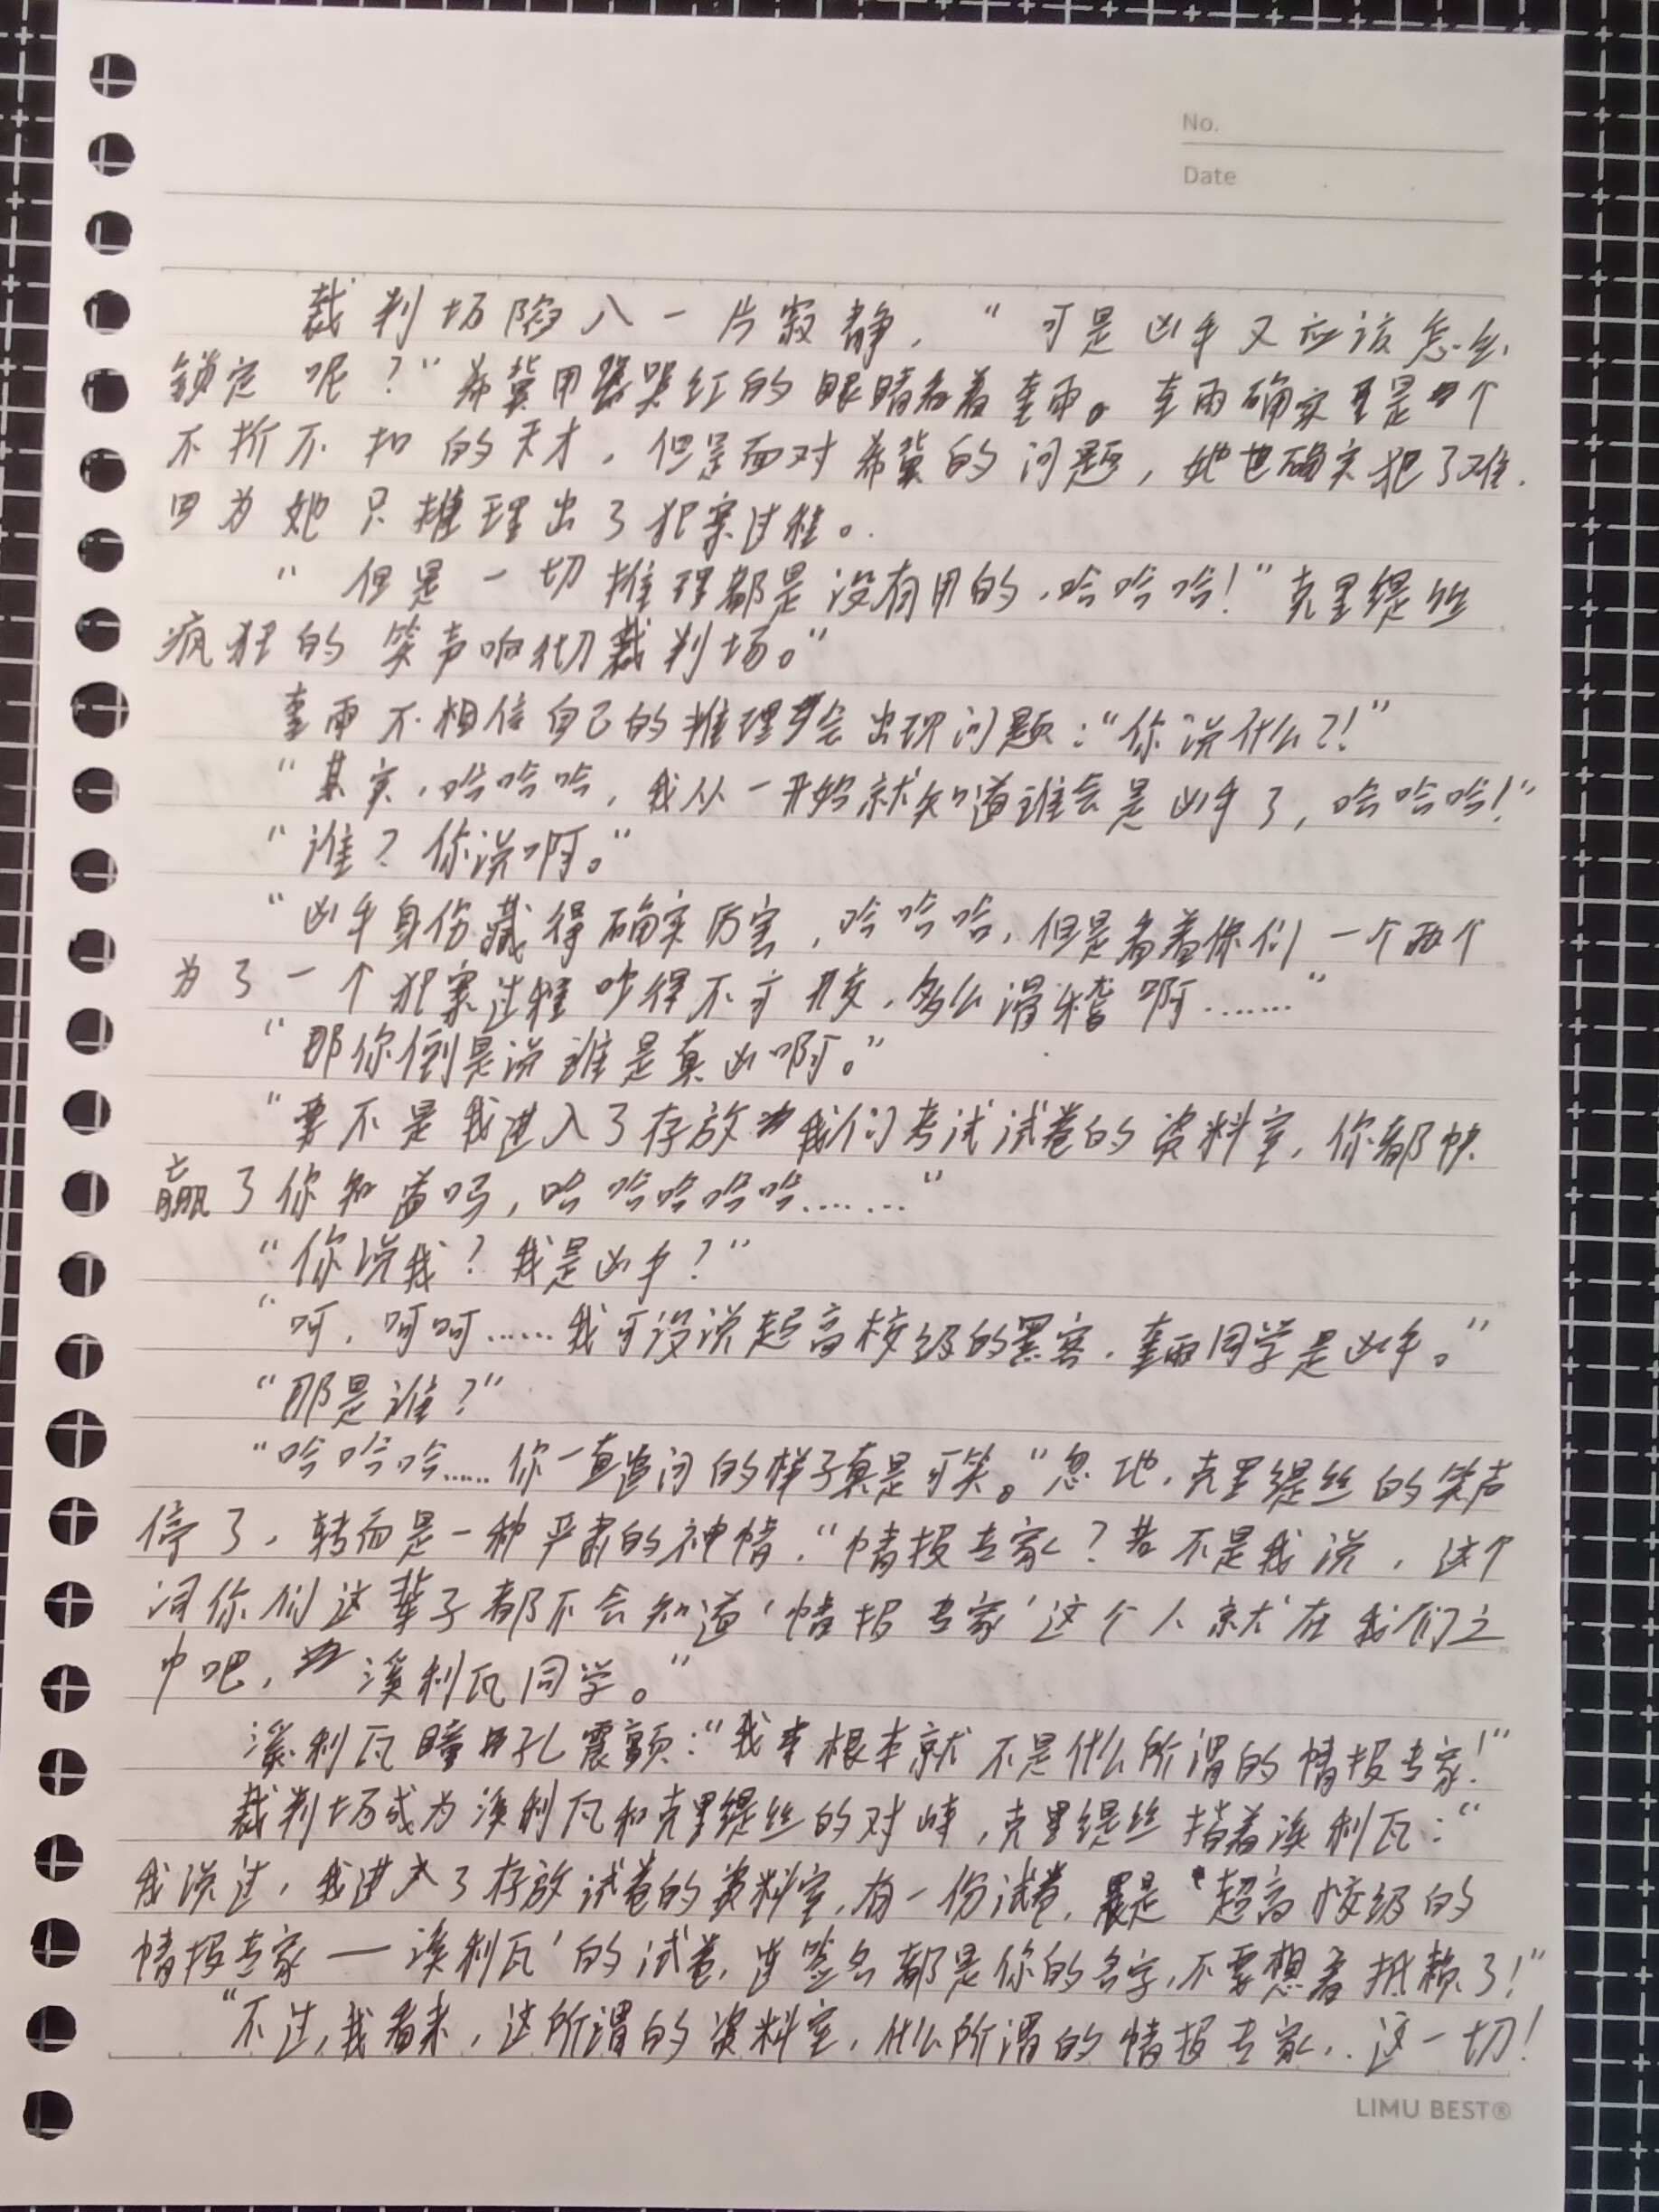 No.
Date
裁判场陷入一片寂静，“可是凶手又应该怎么
锁定呢？”希冀用哭红的眼睛看着奎雨。奎雨确实是个
不折不扣的天才，但是面对希冀的问题，她也确实犯了难.
因为她只推理出了犯案过程。
“但是一切推理都是没有用的，哈哈哈！”克里缇丝
疯狂的笑声响彻裁判场。”
奎雨不相信自己的推理会出现问题：“你说什么？！”
“其实，哈哈哈，我从一开始就知道谁会是凶手了，哈哈哈！”
“谁？你说啊。”
“凶手身份藏得确实厉害，哈哈哈，但是看着你们一个两个
为了一个犯案过程吵得不可开交，多么滑稽啊……”
“那你倒是说谁是真凶啊。”
“要不是我进入了存放我们考试试卷的资料室，你都快
赢了你知道吗，哈哈哈哈哈……”
“你说我？我是凶手？”
“呵，呵呵……我可没说超高校级的黑客，奎雨同学是凶手。”
“那是谁？”
“哈哈哈……你一直追问的样子真是可笑。”忽地，克里缇丝的笑声
停了，转而是一种严肃的神情，“情报专家？若不是我说，这个
词你们这辈子都不会知道‘情报专家’这个人就在我们之
中吧，溪利瓦同学。”
溪利瓦瞳孔震颤：“我根本就不是什么所谓的情报专家！”
裁判场成为溪利瓦和克里缇丝的对峙，克里缇丝指着溪利瓦：“
我说过，我进入了存放试卷的资料室，有一份试卷，是‘超高校级的
情报专家—溪利瓦’的试卷，连签名都是你的名字，不要想着抵赖了！”
“不过，我看来，这所谓的资料室，什么所谓的情报专家，这一切！
LIMU BEST®